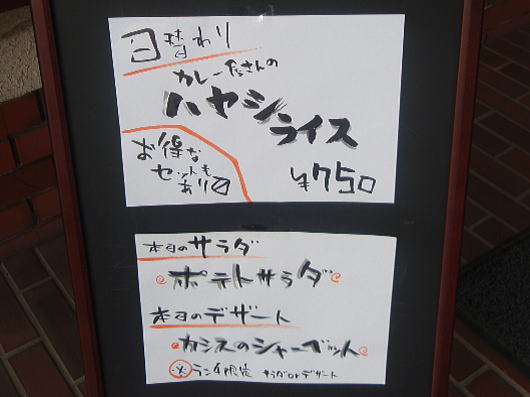 日替わり
カレー屋さんの
ハヤシ
ライス
お得な
セットも
あり〼
¥750
本日のサラダ
ポテトサラダ
本日のデザート
カシスのシャーベット
※ランチ限定 サラダorデザート